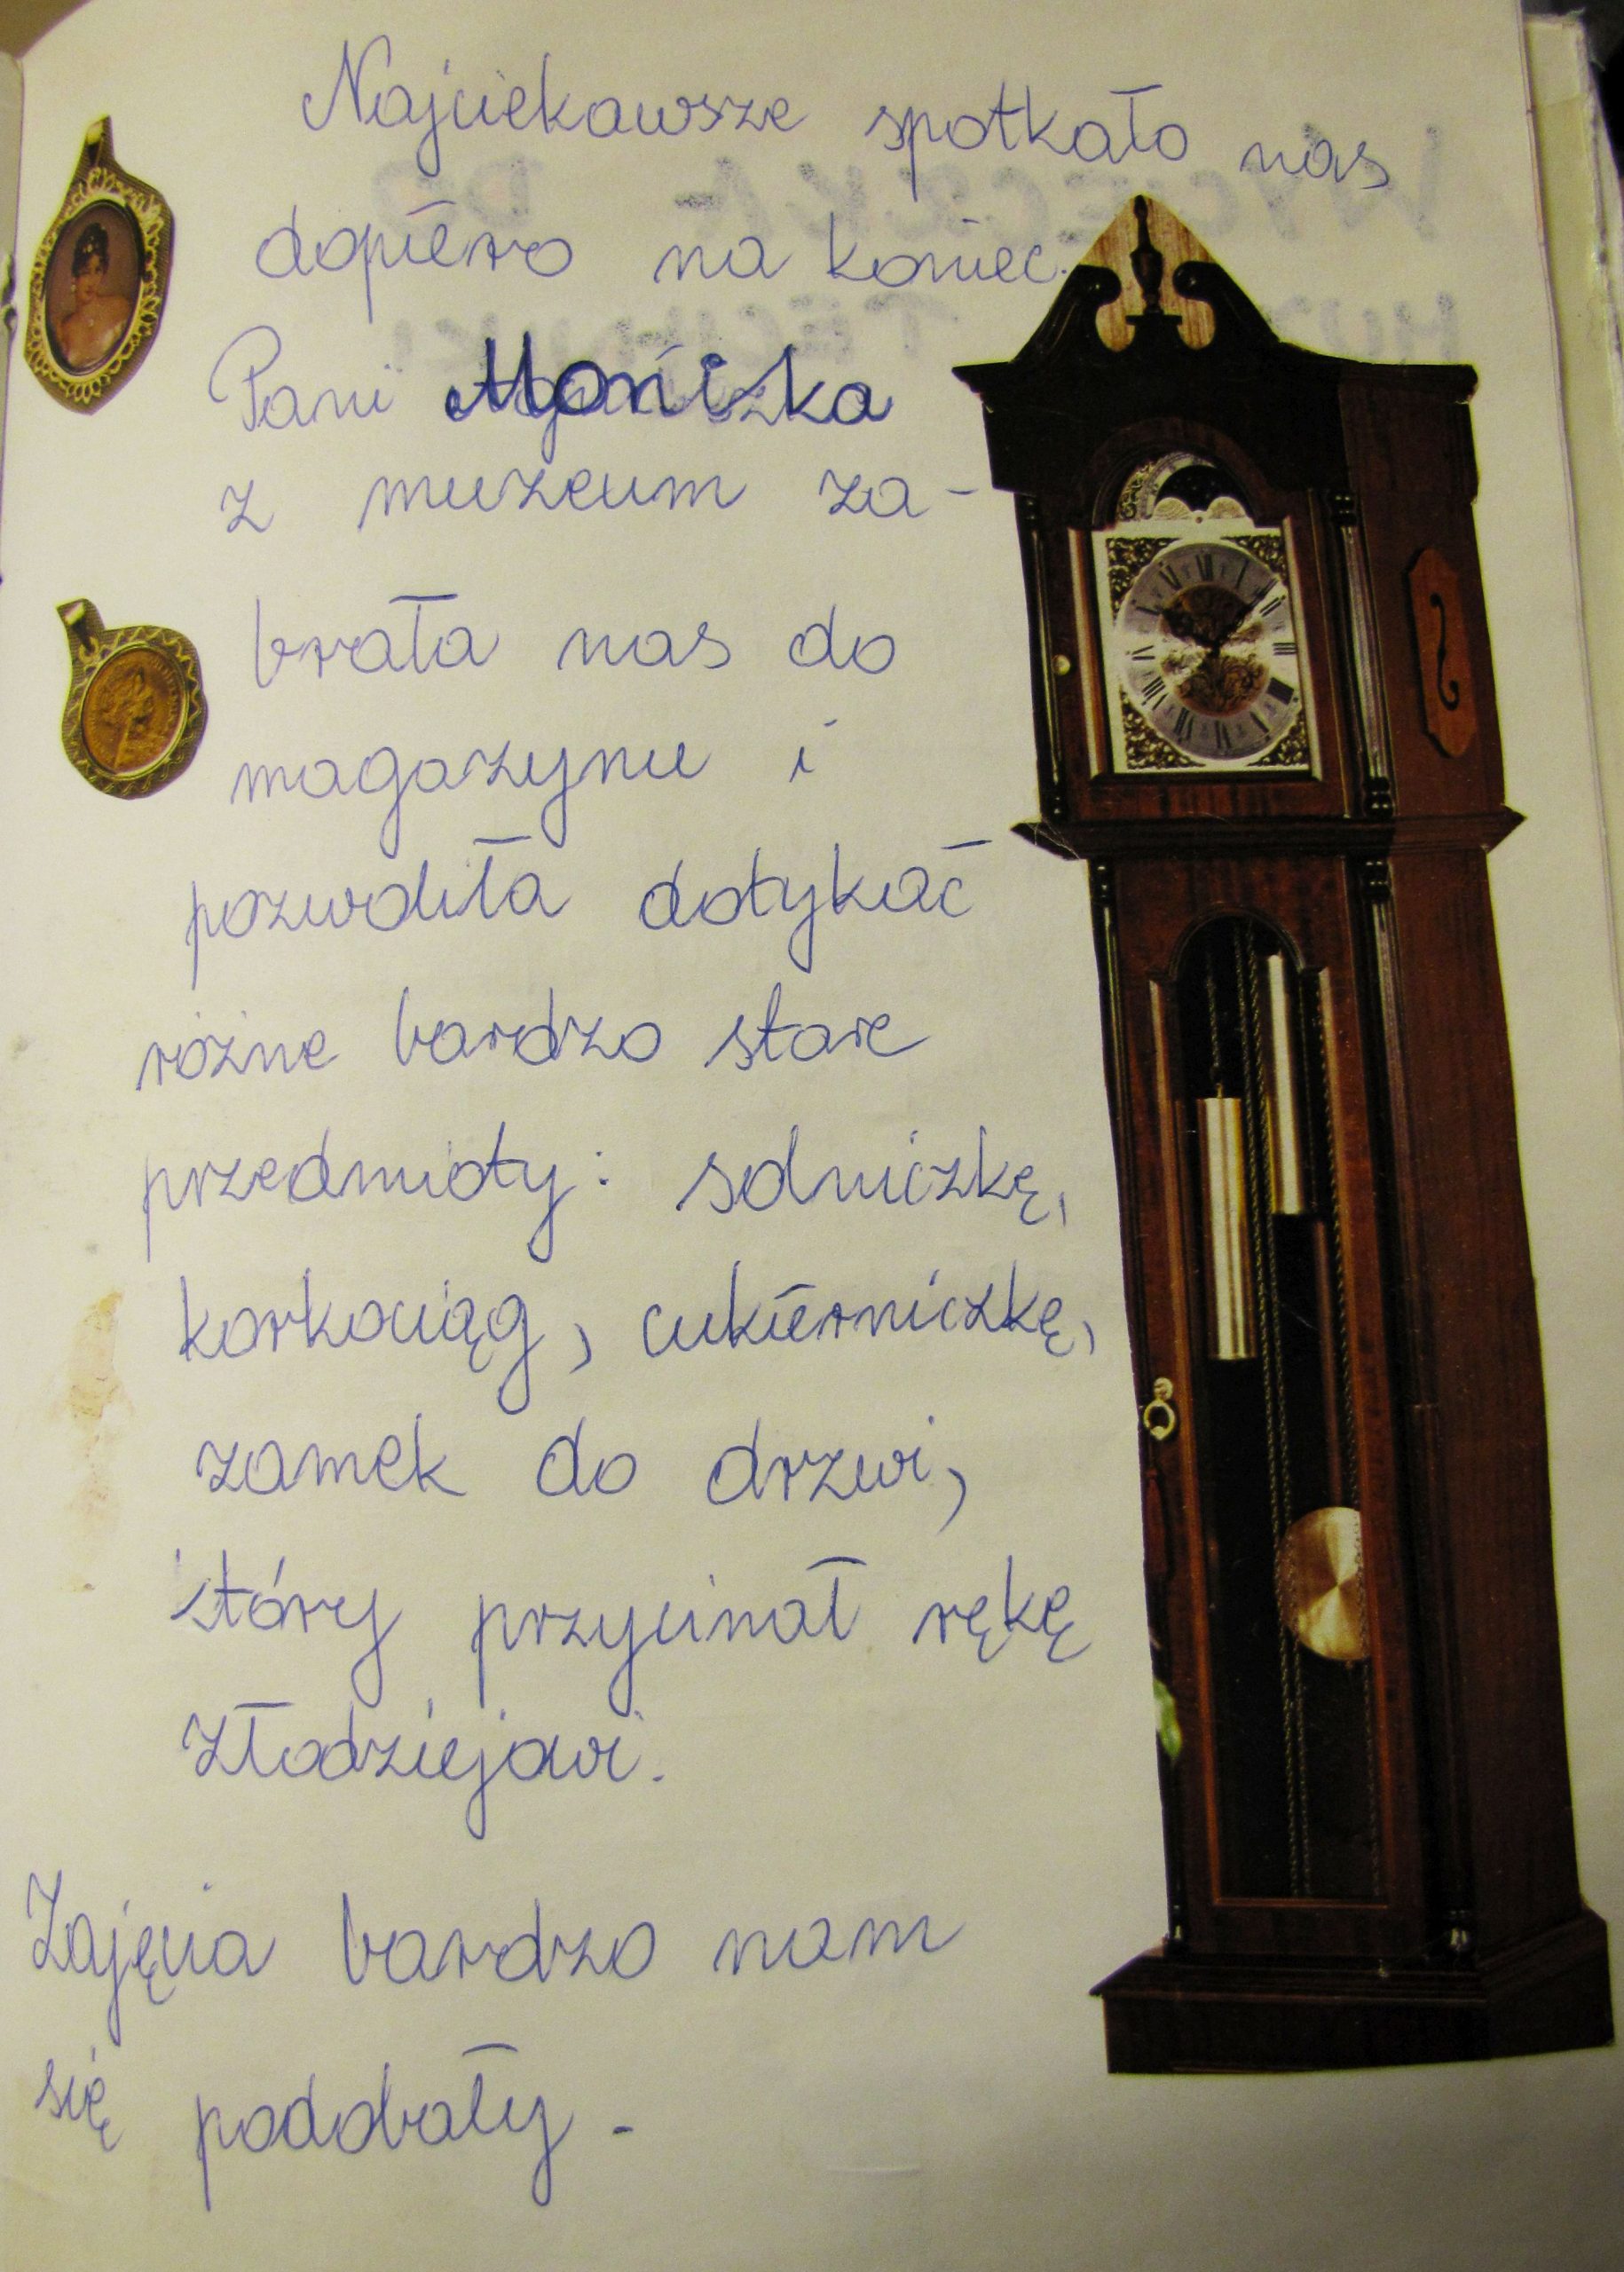 Najciekawsze spotkało nas
dopiero na koniec.
Pani Moniczka
z muzeum za-
brała nas do
magazynu i
pozwoliła dotykać
różne bardzo stare
przedmioty: solniczkę,
korkociąg, cukierniczkę,
zamek do drzwi,
który przycinał rękę
złodziejowi.
Zajęcia bardzo nam
się podobały.